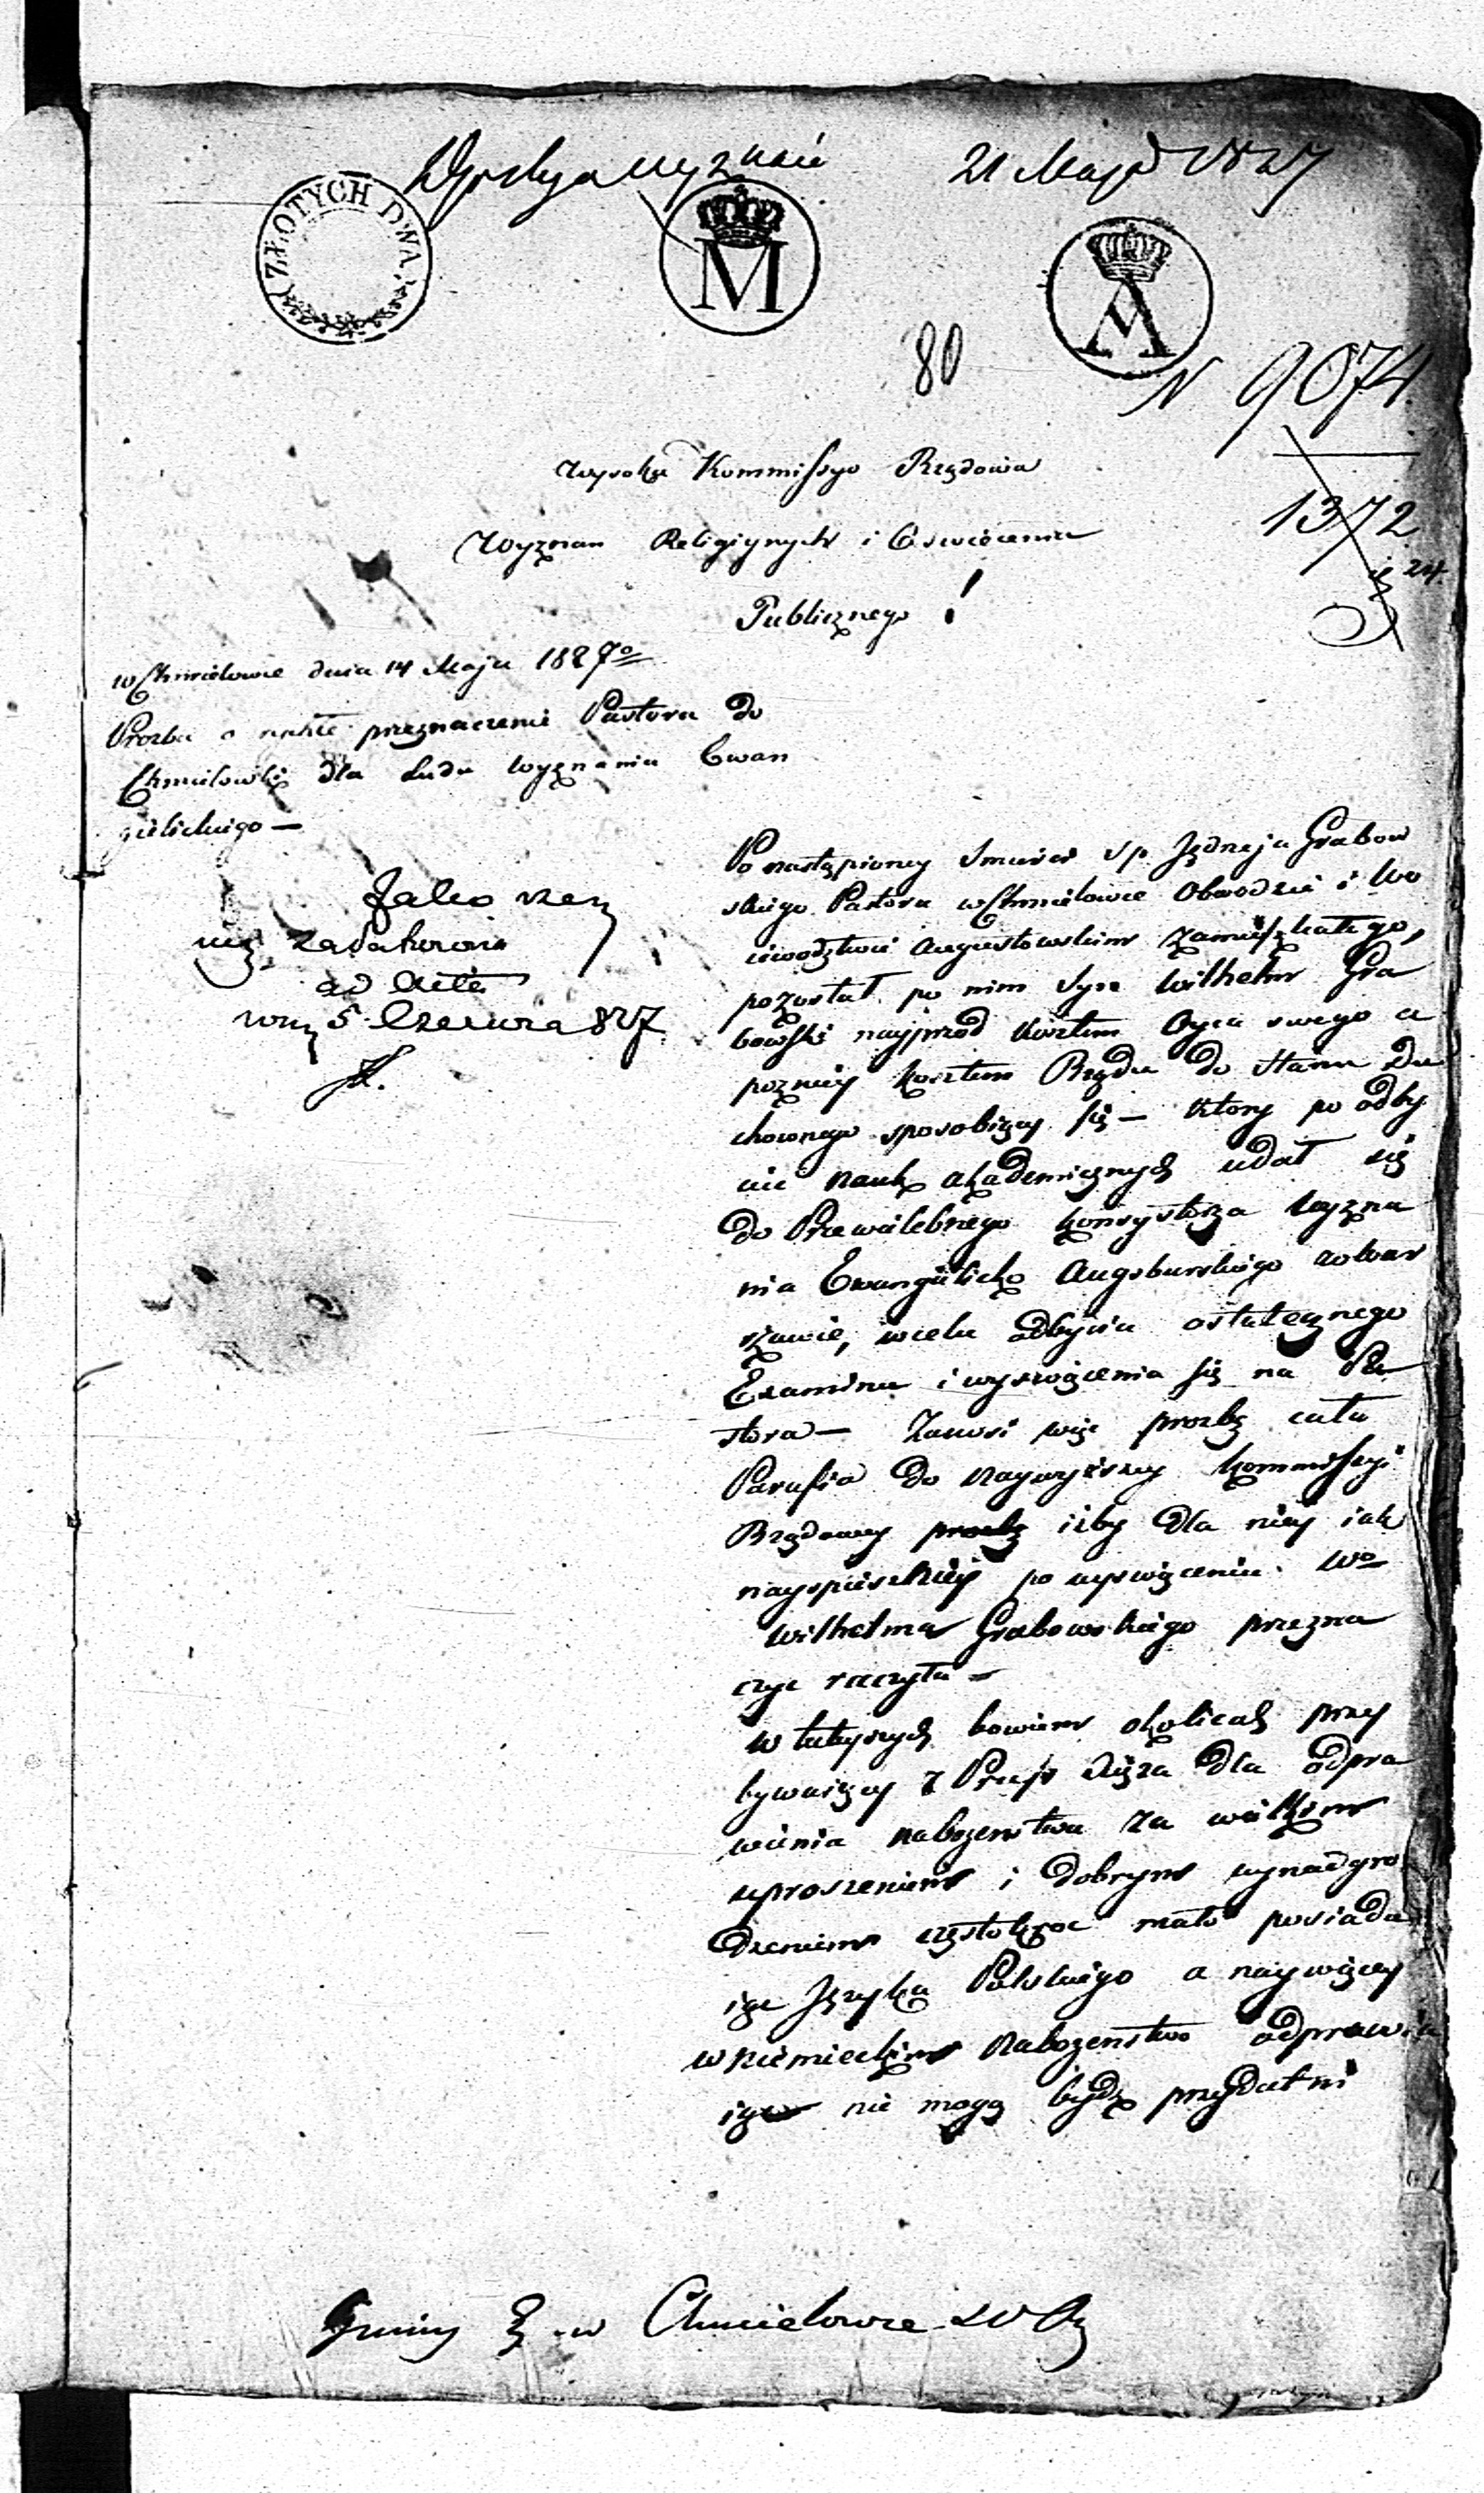 21 Maja 1827
ZŁOTYCH DWA
M
A
80
N 9074
1372
24
Wysoka Kommissyo Rządowa
Wyznan Religiynych i Oswiecenia
Publicznego !
w Chmielowie dnia 14 Maja 1827o
Prozba o rychłe przeznaczenie Pastora do
Chmielowki dla Ludu wyznania Ewan
gielickiego —
Jako rzecz
załatwiona
ad Acta
5 Czerwca 827
Po nastąpioney Smierci sp. Jędrzeja Grabow
skiego Pastora w Chmielowce Obwodzie i Wo
iewodztwie Augustowskim zamieszkałego,
pozostał po nim Syn Wilhelm Gra
bowski nayprzod kosztem Oyca swego a
pozniey kosztem Rządu do stanu Du
chownego sposobiący się — Ktory po odby
cie nauk akademicznych udał się
do Przewielebnego Konsystorza Wyzna
nia Ewangielicko Augsburskiego w War
szawie, w celu odbycia ostatecznego
Examinu i wyswięcenia się na Pa
stora — Zanosi więc prozbę cała
Parafia do Naywyższey Kommissyi
Rządowey prozbę izby dla niey iak
nayspieszniey po wyswięceniu Wo
Wilhelma Grabowskiego przezna
czyc raczyła —
W tuteyszych bowiem okolicach przy
bywaiący z Pruss Xięza dla odpra
wienia nabozenstwa za wielkiem
uproszeniem i dobrym wynadgro
dzeniem częstokroc mało posiada
iąc Języka Polskiego a naywięcey
w niemieckim Nabozenstwo odprawia
iąc nie mogą bydz przydatni
Gminy E. w Chmielowce